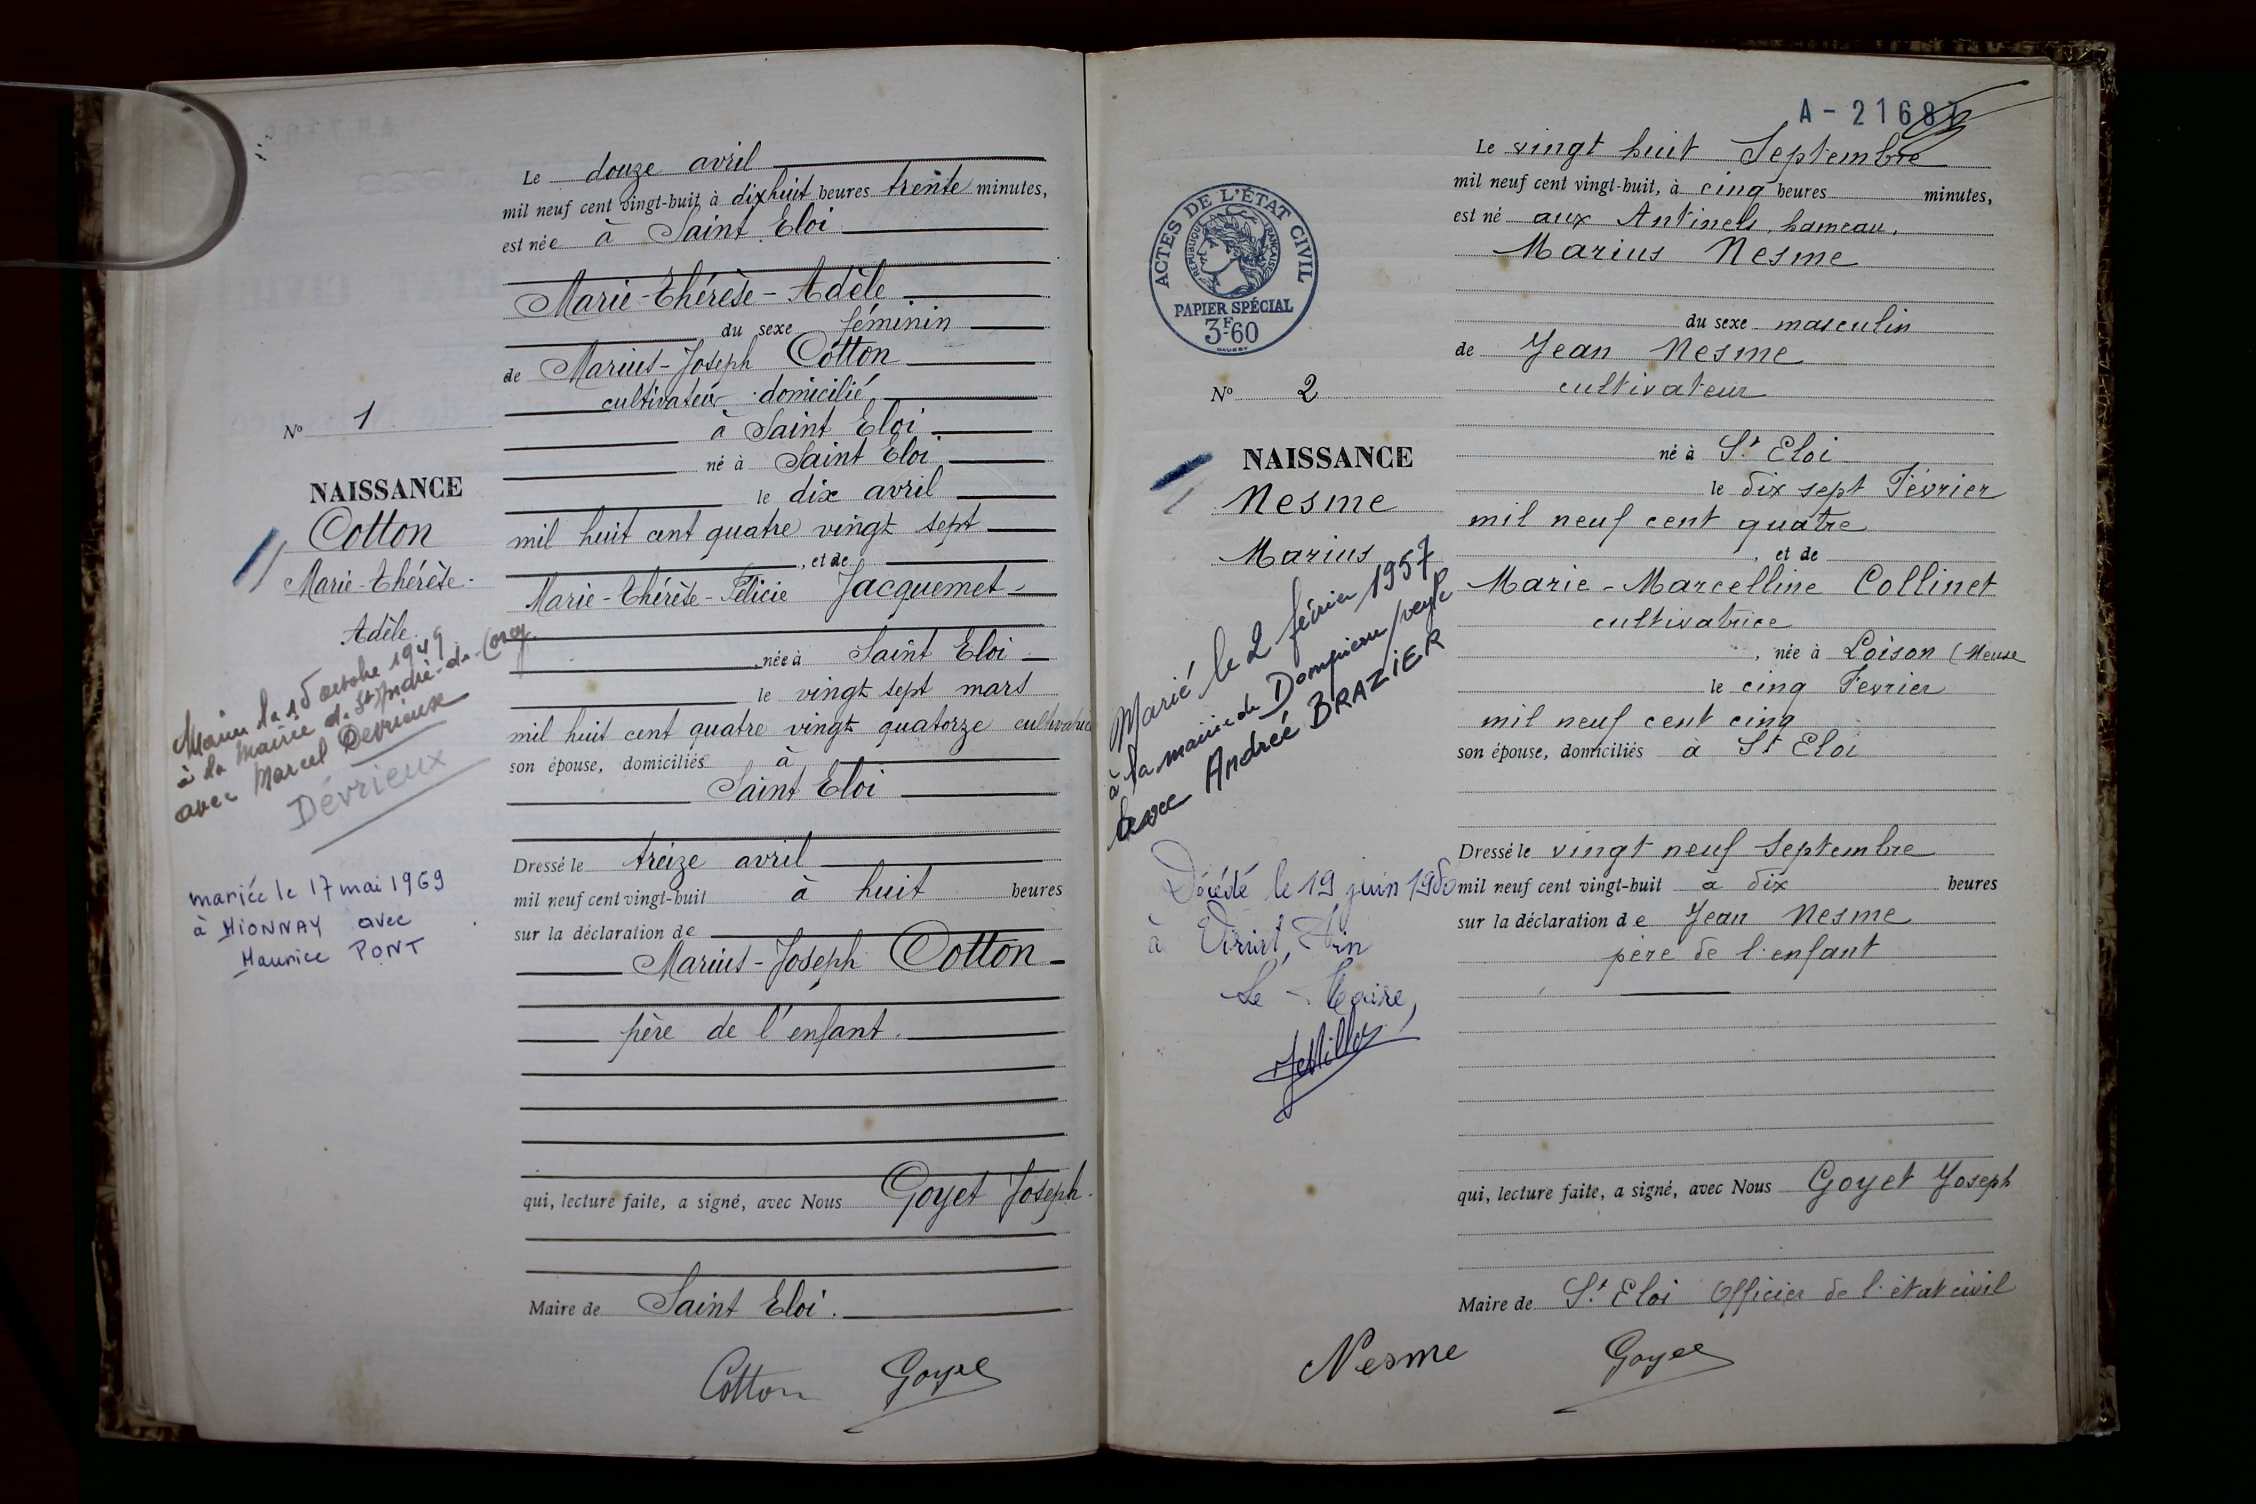 Le douze avril
mil neuf cent vingt-huit à dix huit heures trente minutes,
est née à Saint Eloi
Marie-Thérèse-Adèle
du sexe féminin
de Marius-Joseph Cotton
cultivateur domicilié
à Saint Eloi
né à Saint Eloi
le dix avril
mil huit cent quatre vingt sept
, et de
Marie-Thérèse-Félicie Jacquemet
, née à Saint Eloi
le vingt sept mars
mil huit cent quatre vingt quatorze
son épouse, domiciliés à
Saint Eloi
Dressé le treize avril
mil neuf cent vingt-huit à huit heures
sur la déclaration de
Marius-Joseph Cotton
père de l'enfant.
qui, lecture faite, a signé, avec Nous Goyet Joseph
Maire de Saint Eloi.
Cotton
Nº 1
NAISSANCE
Cotton
Marie-Thérèse-
Adèle
octobre 1949
à la mairie de St André de Corcy
avec Marcel Devrieux
Dévrieux
mariée le 17 mai 1969
à MIONNAY avec
Maurice PONT
A-2168
ACTES DE L'ÉTAT CIVIL
RÉPUBLIQUE FRANÇAISE
PAPIER SPÉCIAL
3F60
Nº 2
NAISSANCE
Nesme
Marius
Marié le 2 février 1957
à la mairie de Dompierre/veyle
avec Andrée BRAZIER
Décédé le 19 juin 1980
à Viriat, Ain
Le Maire,
Le vingt huit Septembre
mil neuf cent vingt-huit, à cinq heures minutes,
est né aux Antinels, hameau,
Marius Nesme
du sexe masculin
de Jean Nesme
cultivateur
né à St Eloi
le dix sept Février
mil neuf cent quatre
, et de
Marie-Marcelline Collinet
cultivatrice
, née à Loison (Meuse
le cinq Février
mil neuf cent cinq
son épouse, domiciliés à St Eloi
Dressé le vingt neuf Septembre
mil neuf cent vingt-huit à dix heures
sur la déclaration de Jean Nesme
père de l'enfant
qui, lecture faite, a signé, avec Nous Goyet Joseph
Maire de St Eloi Officier de l'état civil
Nesme